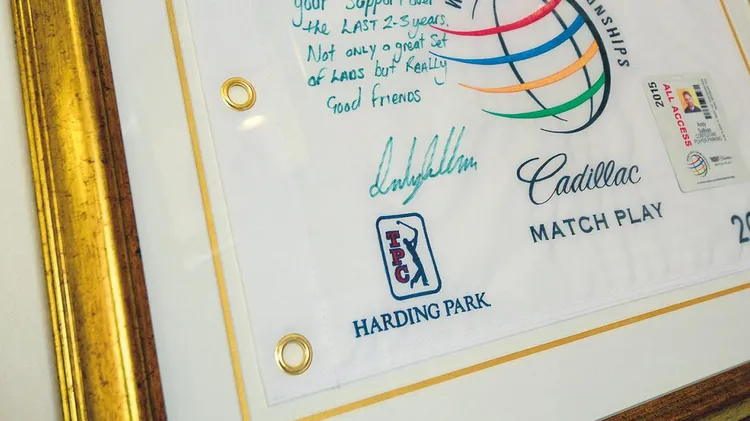 your support over
the LAST 2-3 years.
Not only a great set
of LADS but Really
Good friends
Cadillac
MATCH PLAY
TPC
HARDING PARK
2015
ALL ACCESS
Andy
Sullivan
20